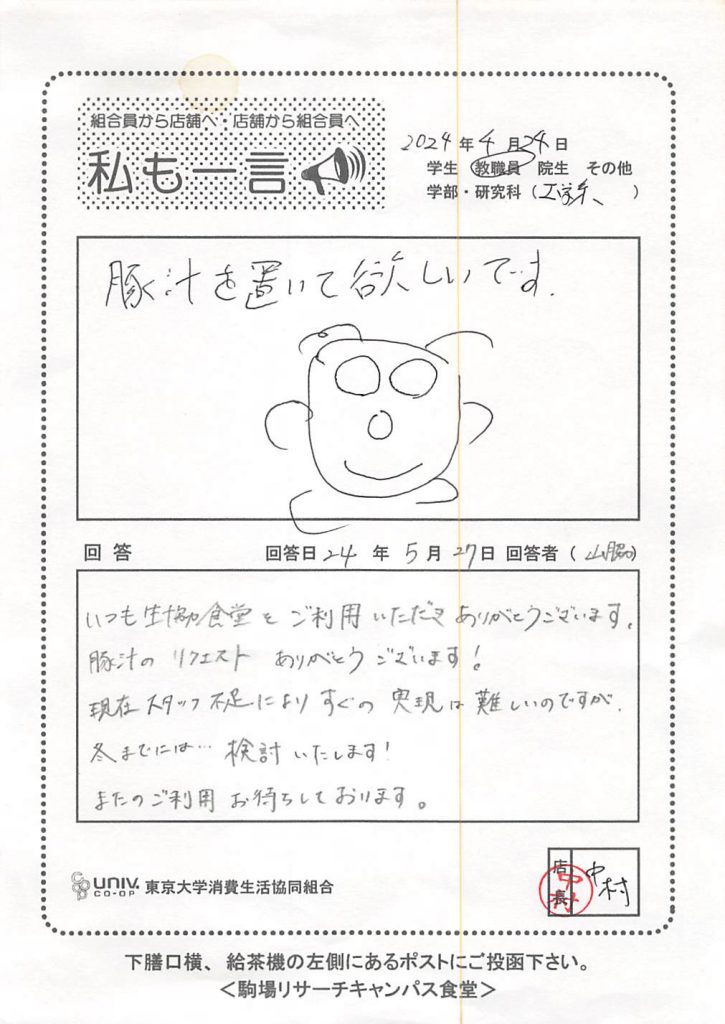 組合員から店舗へ・店舗から組合員へ
私も一言
2024年4月24日
学生 教職員 院生 その他
学部・研究科( )
豚汁を置いて欲しいです.
回答 回答日24年5月27日 回答者(山脇)
いつも生協食堂をご利用いただきありがとうございます。
豚汁のリクエストありがとうございます!
現在スタッフ不足によりすぐの実現は難しいのですが、
冬までには…検討いたします!
またのご利用お待ちしております。
UNIV.
CO-OP
東京大学消費生活協同組合
店長 中村
中村
下膳口横、給茶機の左側にあるポストにご投函下さい。
<駒場リサーチキャンパス食堂>